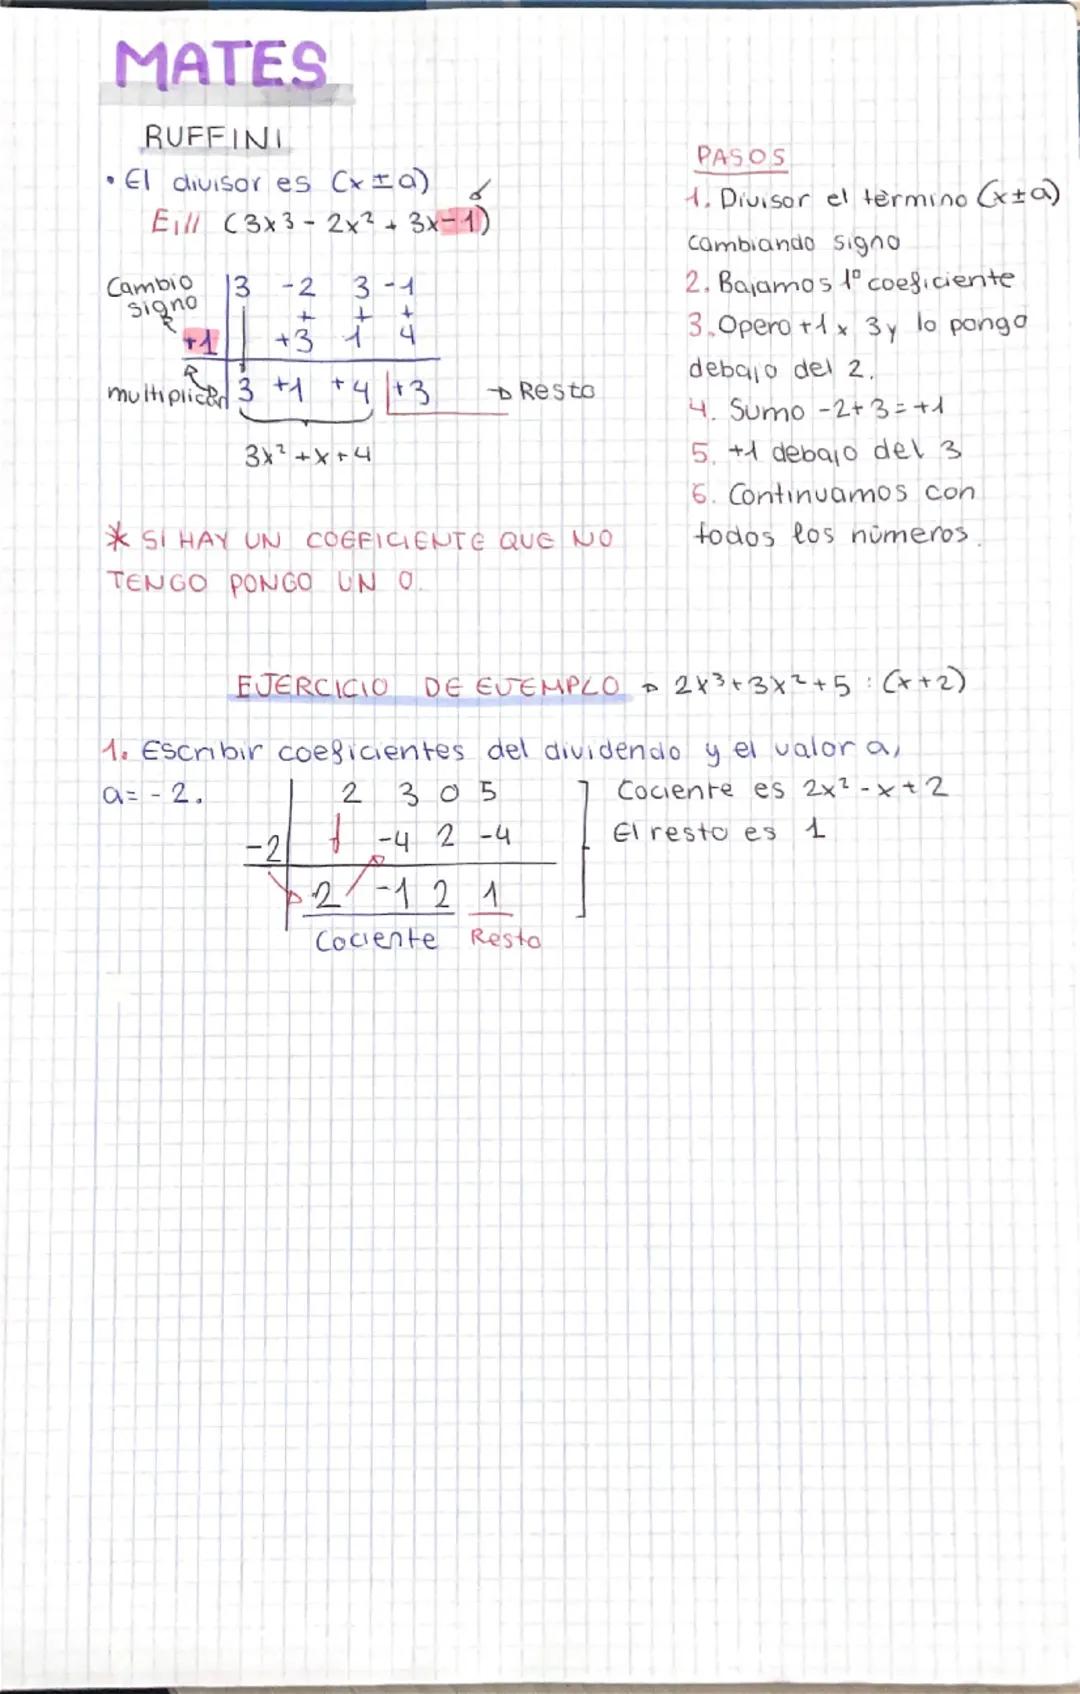 MATES
RUFFINI
• El divisor es (x ± a)
Ej// (3x3 - 2x² + 3x-1)
Cambio signo
3 -2 3 -1
+ + +
+1 +3 1 4
multiplicar 3 +1 +4 +3 → Resto
3x² + x + 4
* SI HAY UN COEFICIENTE QUE NO
TENGO PONGO UN 0.
PASOS
1. Divisor el tèrmino (x±a)
cambiando signo
2. Bajamos 1º coeficiente
3. Opero +1 x 3 y lo pongo
debajo del 2.
4. Sumo -2+3=+1
5. +1 debajo del 3
6. Continuamos con
todos los nùmeros.
EJERCICIO DE EJEMPLO → 2x³+3x²+5 : (x+2)
1. Escribir coeficientes del dividendo y el valor a,
a= -2.
2 3 0 5
-2 -4 2 -4
2 -1 2 1
Cociente Resto
Cociente es 2x² - x + 2
El resto es 1